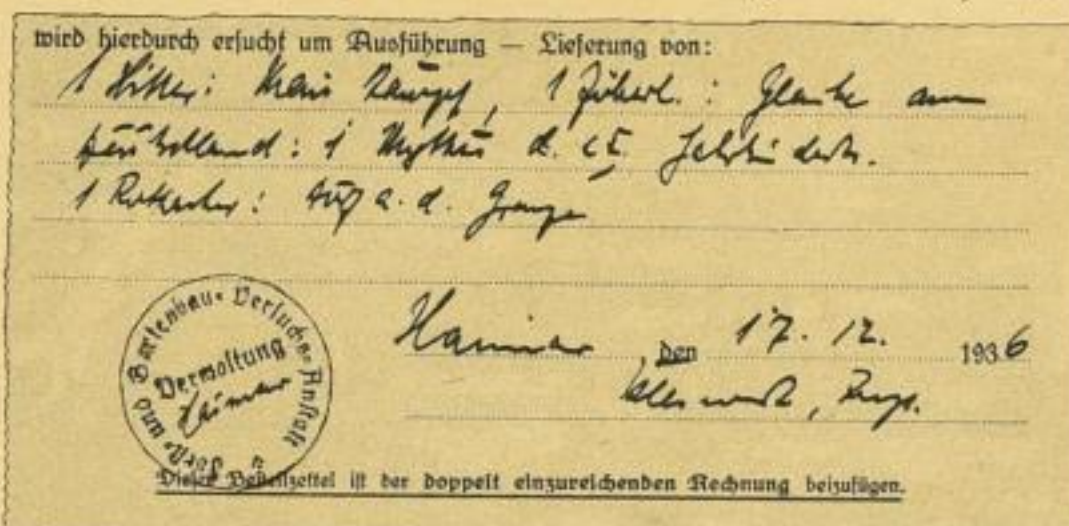 wird hierdurch ersucht um Ausführung — Lieferung von:
1 Hitler: Mein Kampf, 1 Zöberl.: Glaube an
Deutschland: 1 Mythus d. Jahrhunderts.
1 a. d. Grenze
den 17. 12. 1936
Forst- und Gartenbau-Versuchs-Anstalt
Dieser Bestellzettel ist der doppelt einzureichenden Rechnung beizufügen.